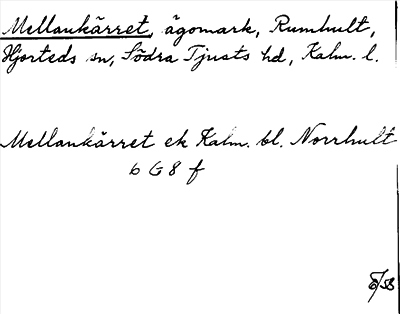 Mellankärret, ägomark, Rumhult,
Hjorteds sn, Södra Tjusts hd, Kalm. l.
Mellankärret ek Kalm. bl. Norrhult
6 G 8 f
/58